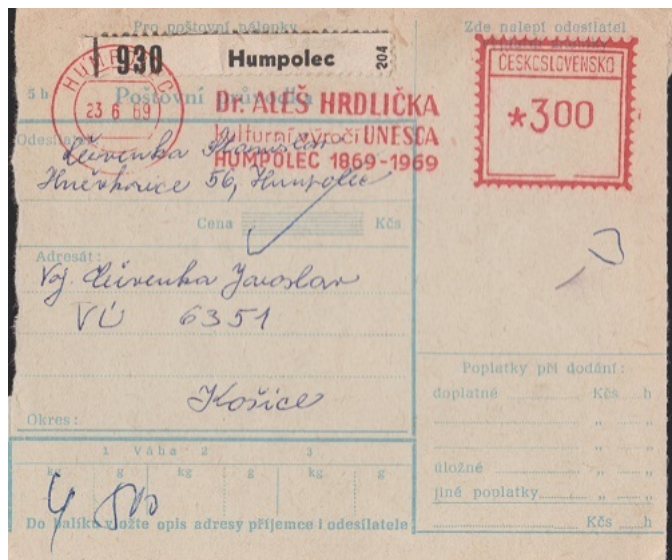 Pro poštovní nálepky
Zde nalepí odesílatel
930 Humpolec 204
HUMPOLEC
23 6 69
ČESKOSLOVENSKO
*300
5 h Poštovní průvodka
Dr. ALEŠ HRDLIČKA
kulturní výročí UNESCA
HUMPOLEC 1869-1969
Odesílatel:
Stanislav
56, Humpolec
Cena Kčs
Adresát:
Voj. Jaroslav
VÚ 6351
Košice
Okres:
Poplatky při dodání:
doplatné Kčs h
" "
" "
úložné " "
jiné poplatky " "
Kčs h
1 Váha 2 3
kg g kg g kg g
4 500
Do balíku vložte opis adresy příjemce i odesílatele